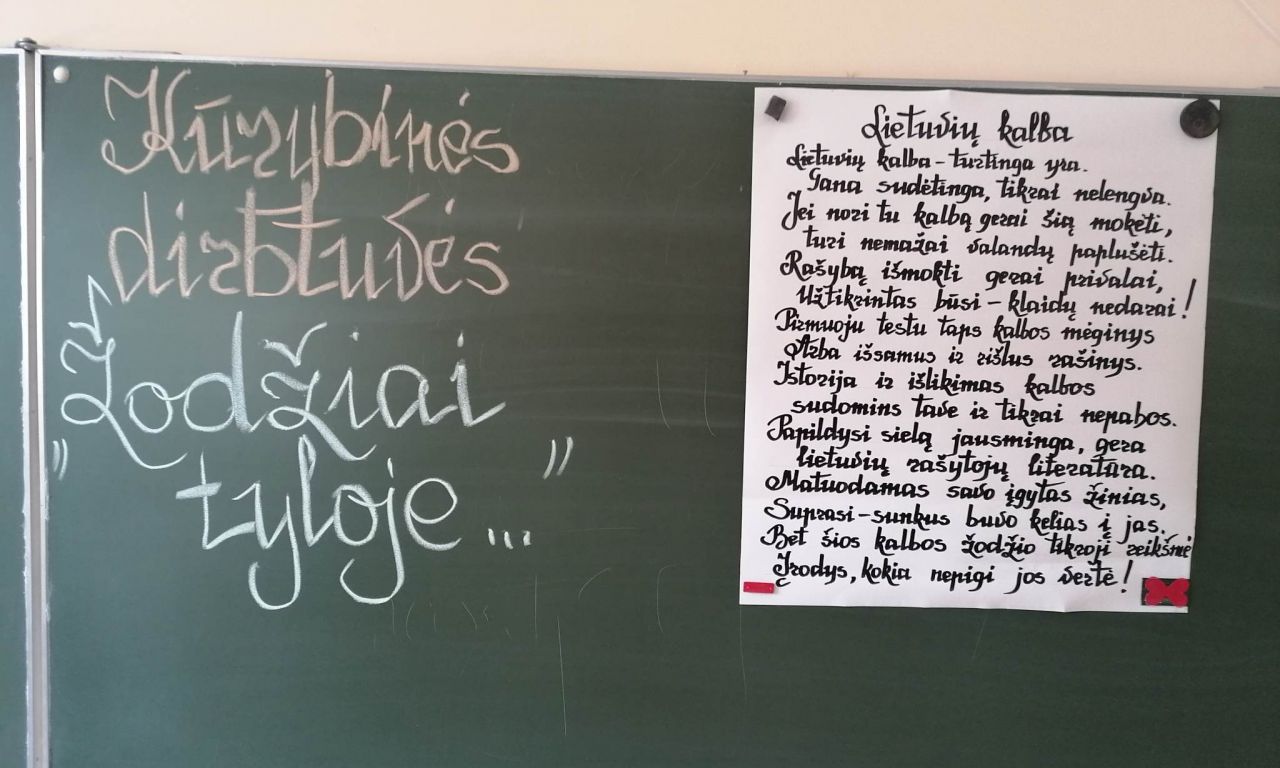 Kūrybinės
dirbtuvės
Žodžiai
" tyloje... "
Lietuvių kalba
Lietuvių kalba - turtinga yra.
Gana sudėtinga, tikrai nelengva.
Jei nori tu kalbą gerai šią mokėti,
turi nemažai valandų paplušėti.
Rašybą išmokti gerai privalai,
Užtikrintas būsi - klaidų nedarai!
Pirmuoju testu taps kalbos mėginys
Arba išsamus ir rišlus rašinys.
Istorija ir išlikimas kalbos
sudomins tave ir tikrai nepabos.
Papildysi sielą jausminga, gera
lietuvių rašytojų literatūra.
Matuodamas savo įgytas žinias,
Suprasi - sunkus buvo kelias į jas.
Bet šios kalbos žodžio tikroji reikšmė
Įrodys, kokia nepigi jos vertė!